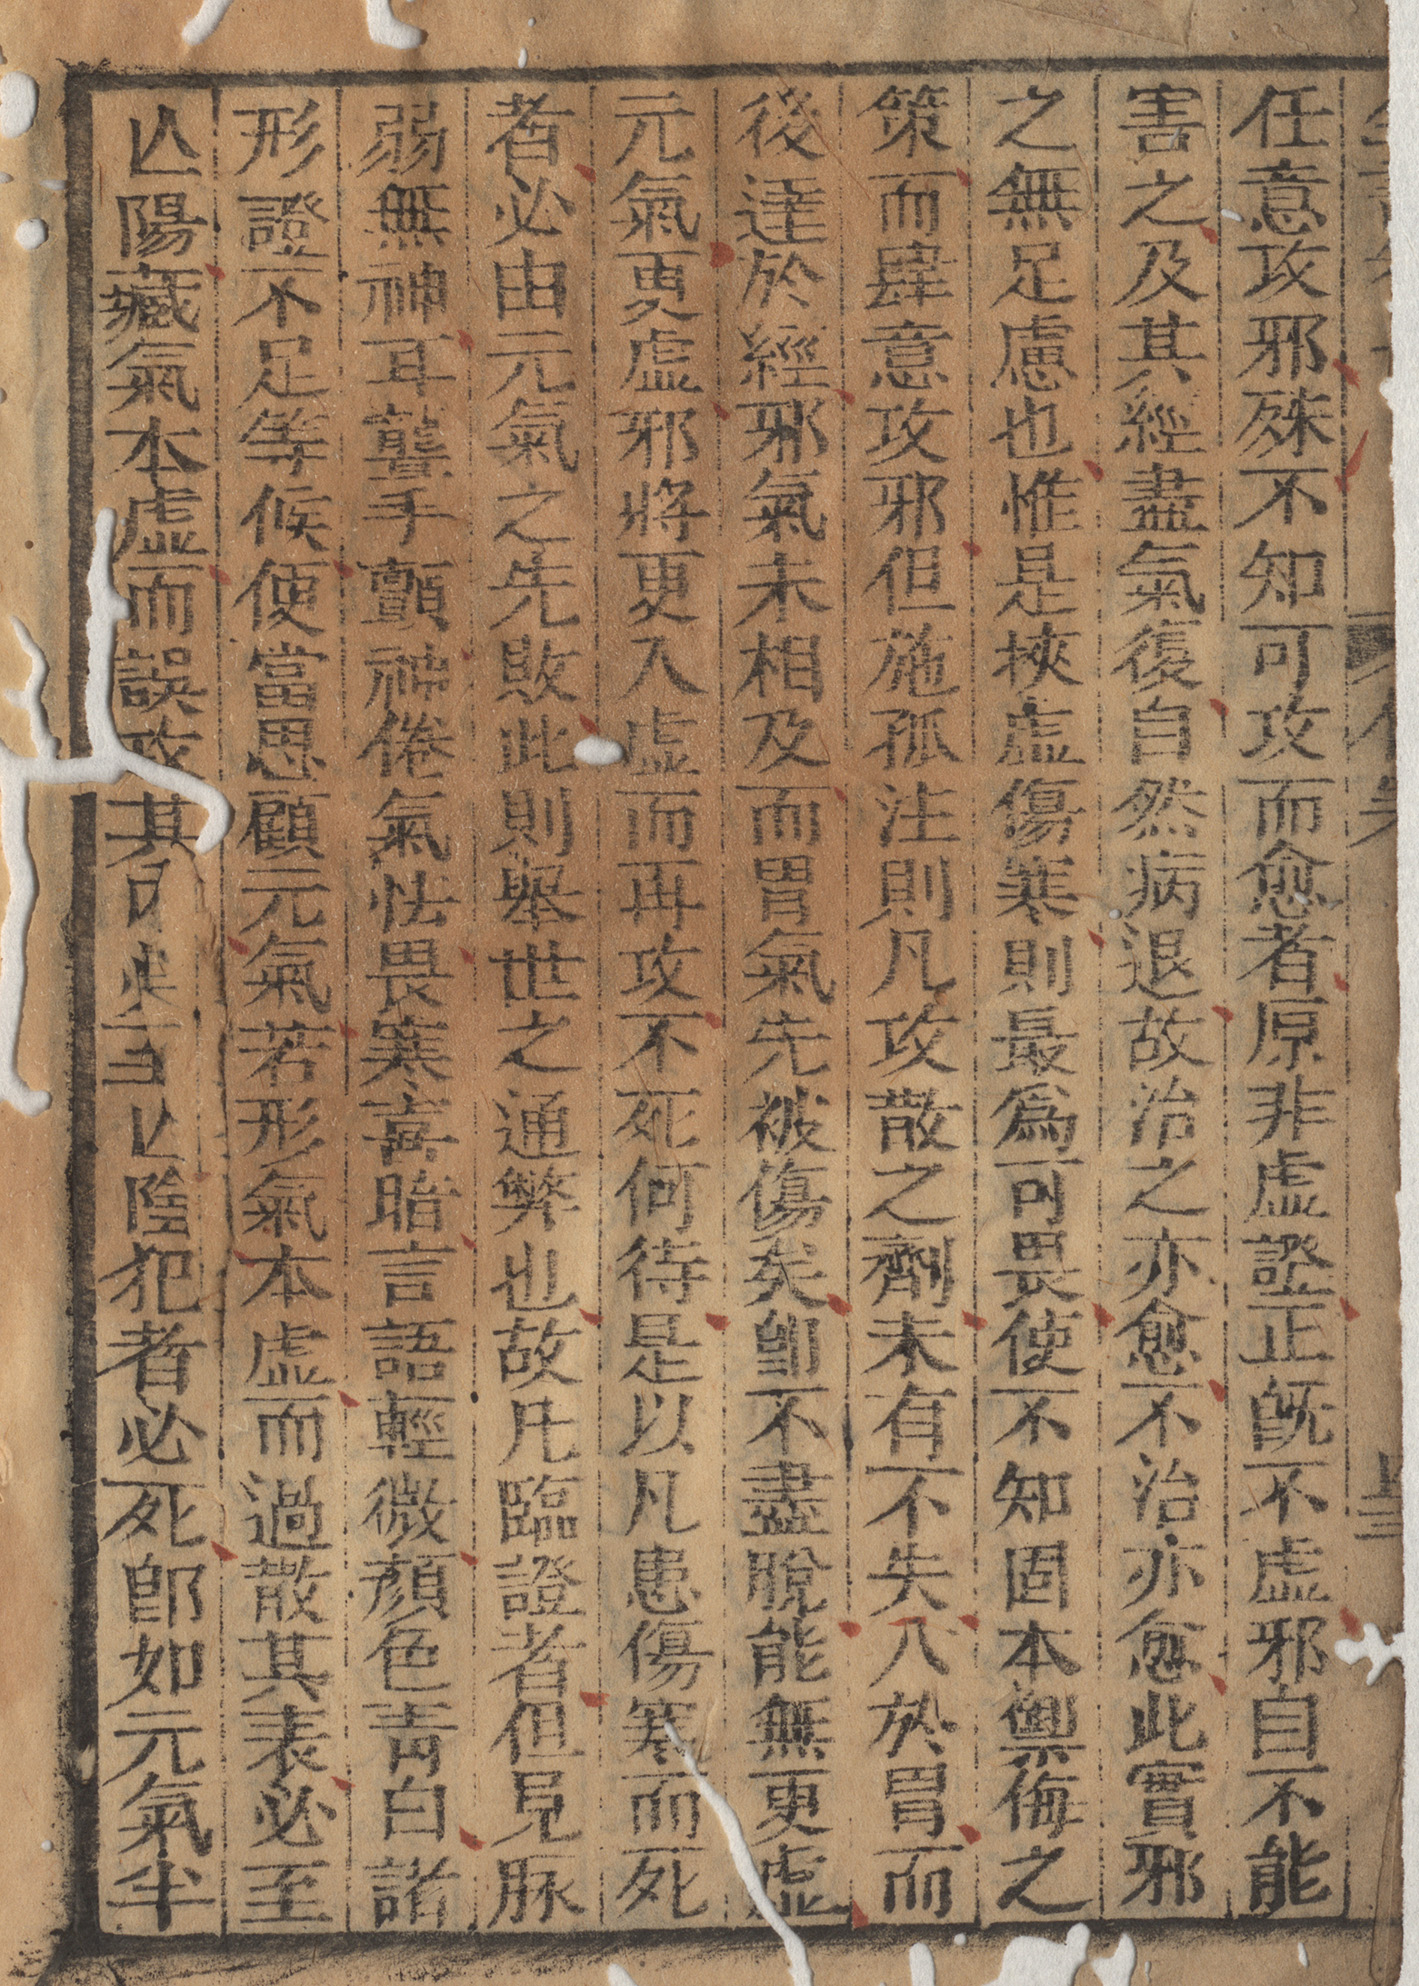 任意攻邪殊不知可攻而愈者原非虛證正既不虛邪自不能
害之及其經盡氣復自然病退故治之亦愈不治亦愈此實邪
之無足慮也惟是挾虛傷寒則最爲可畏使不知固本禦侮之
策而肆意攻邪但施孤注則凡攻散之劑未有不先入於胃而
後達於經邪氣未相及而胃氣先被傷矣卽不盡脫能無更虛
元氣更虛邪將更入虛而再攻不死何待是以凡患傷寒而死
者必由元氣之先敗此則舉世之通弊也故凡臨證者但見脉
弱無神耳聾手顫神倦氣怯畏寒喜暗言語輕微顏色青白諸
形證不足等候便當思顧元氣若形氣本虛而過散其表必至
亾陽藏氣本虛而誤攻其 亾陰犯者必死卽如元氣半